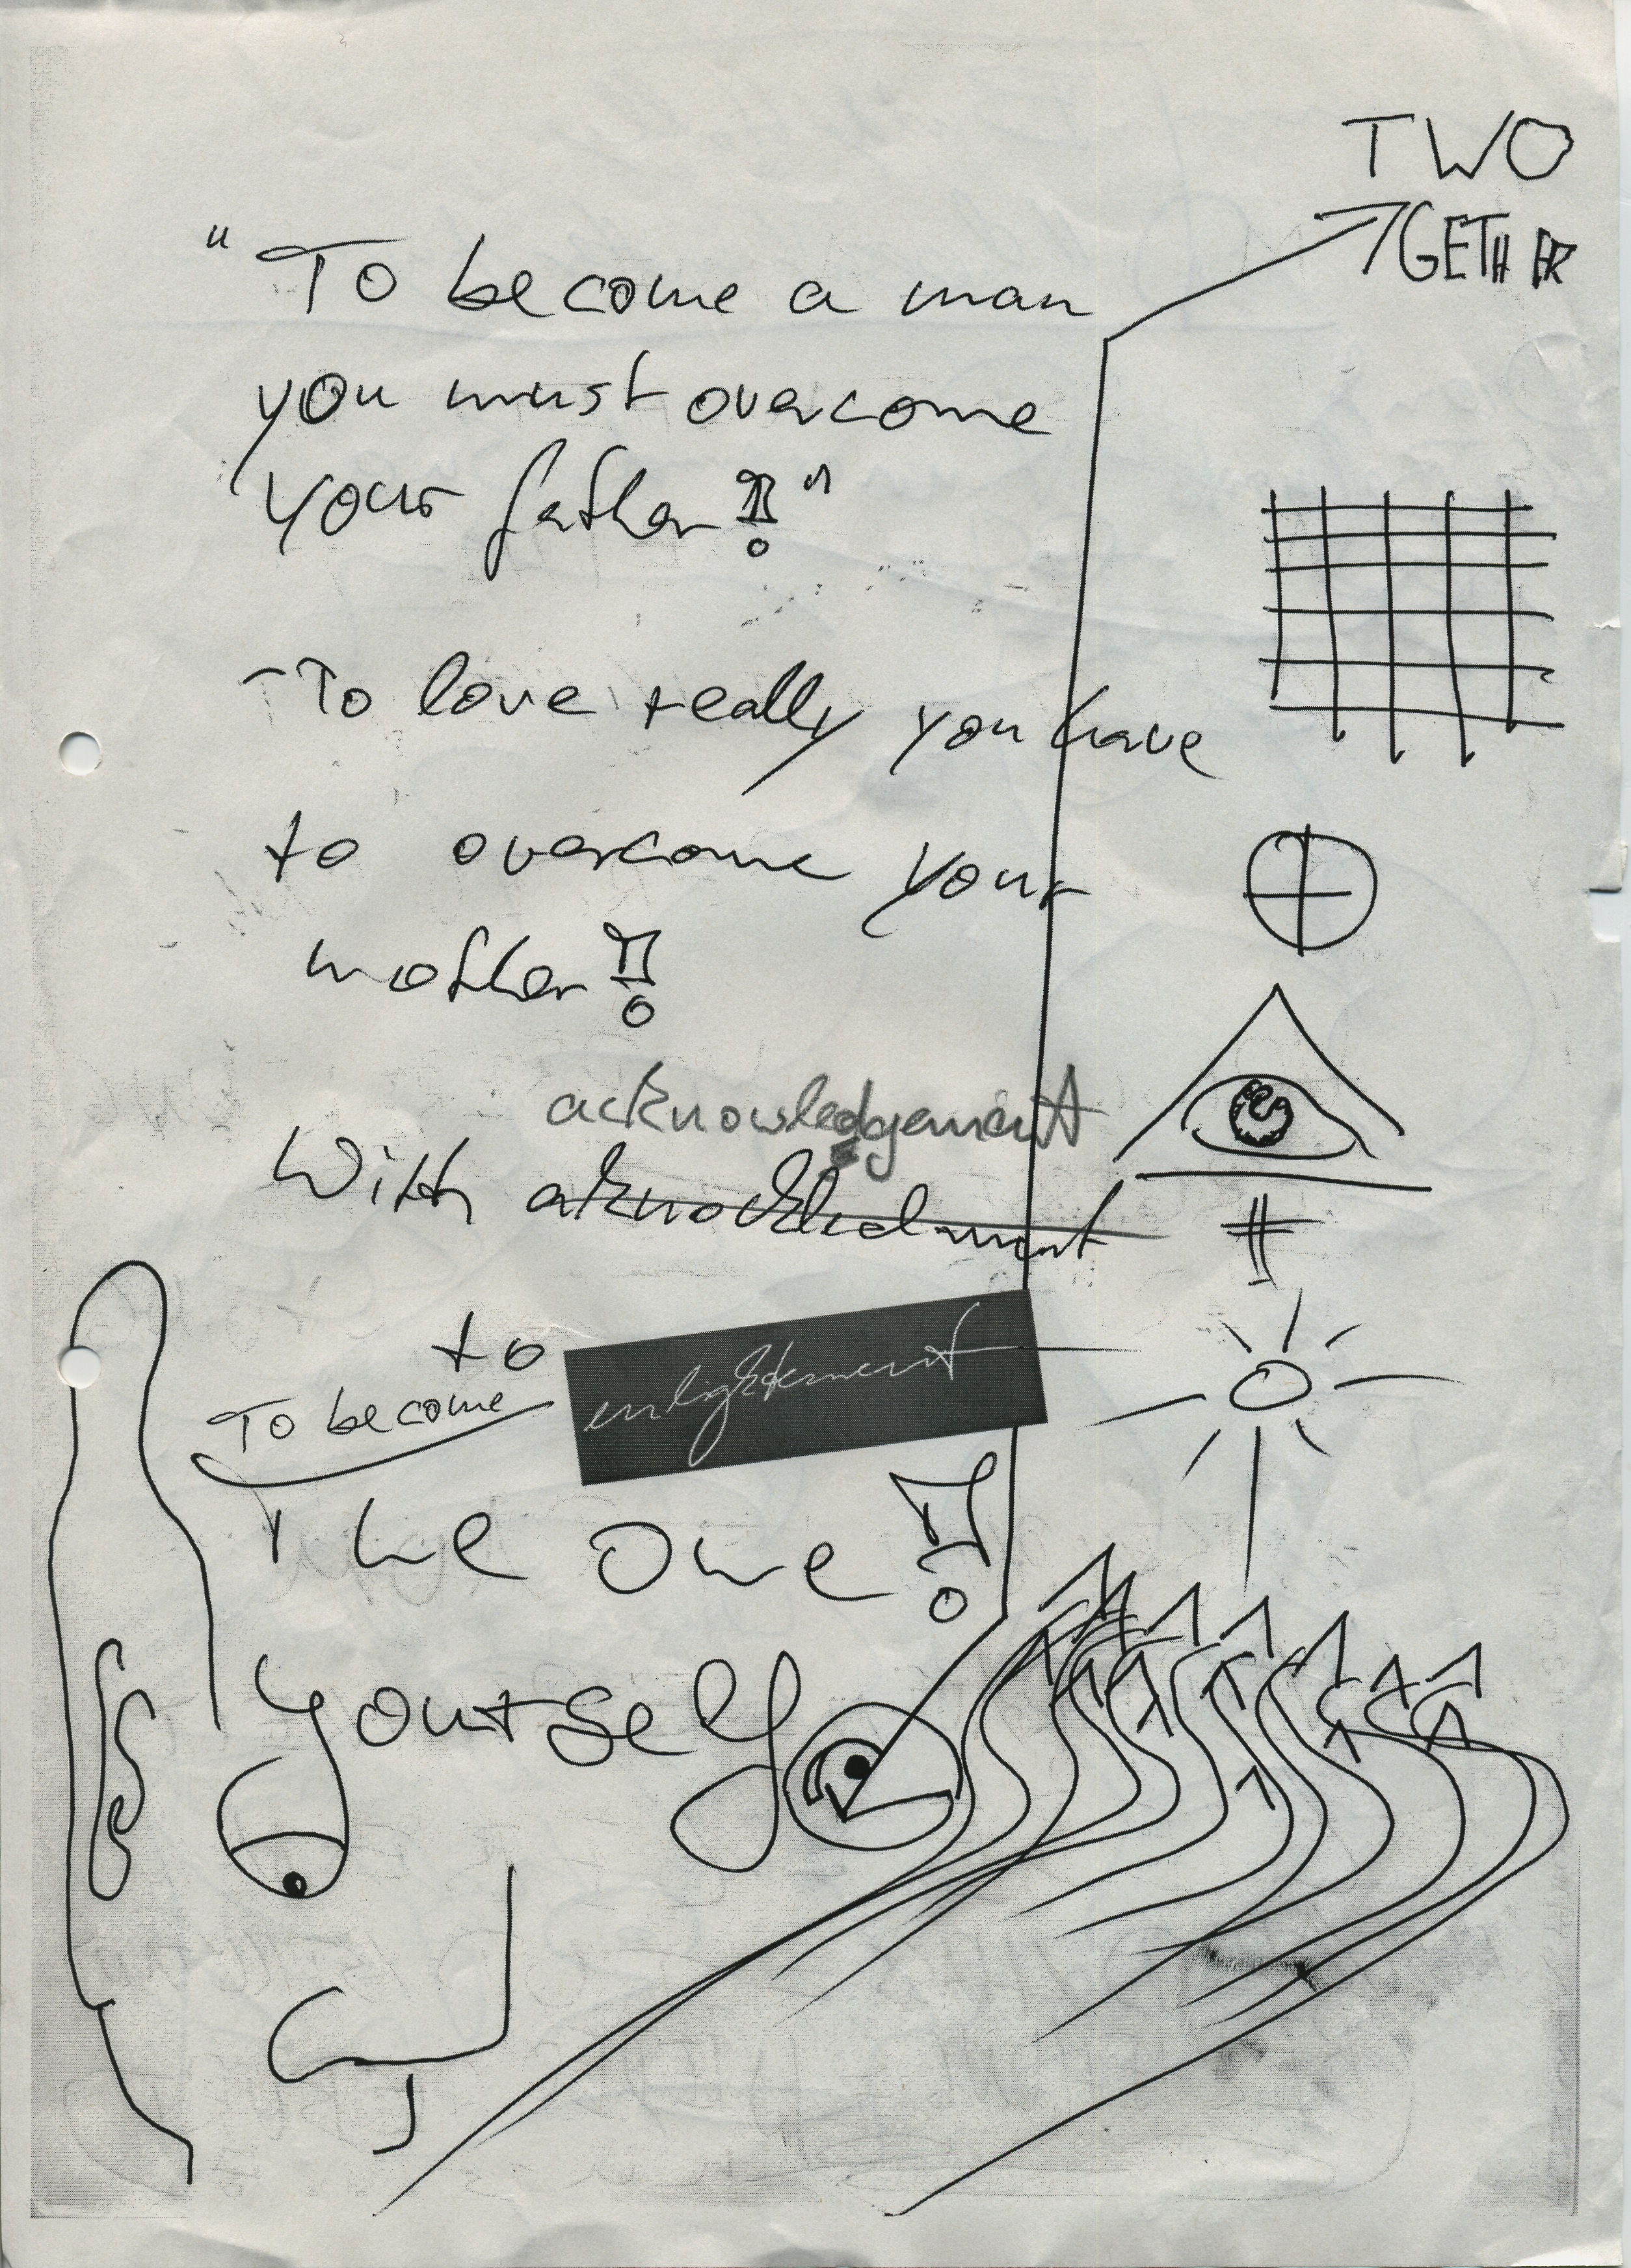 TWO
GETHER
"To become a man
you must overcome
your father!"
-To love really you have
to overcome your
mother!
acknowledgement
With aknockledment
to enlightement
To become
The One!
yourself